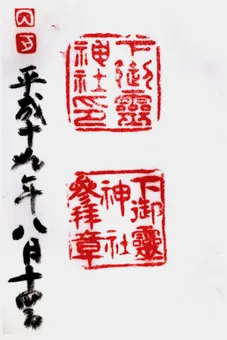 下御霊
神社印
下御靈
神社
參拝章
平成十九年八月十四日